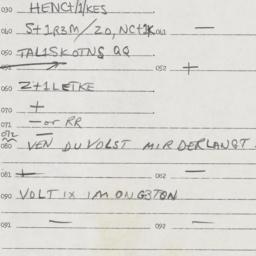 030 HENCt/1/KES
040 St1R3M/ZO, NCt1K 041 —
050 TAL1SKOTNS QQ
052 +
060 Zt1LETKE
070 +
071 — or RR
072 —
080 VEN DU VOLST MIR DERLANGT
081 + 082 —
090 VOLT IX IM ONG3TQN
091 — 092 —